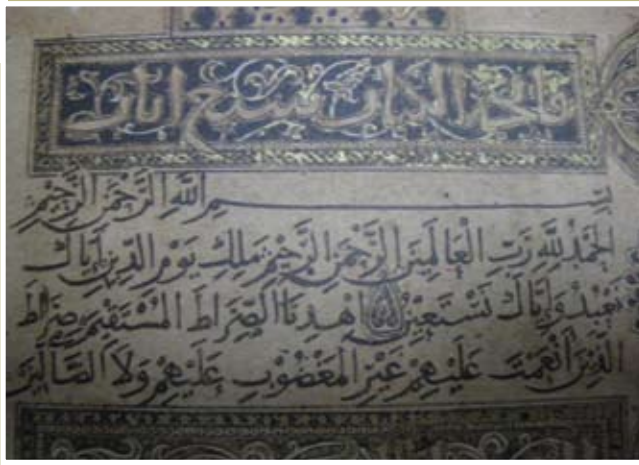 فاتحة الكتاب سبع ايات
بِسْمِ اللَّهِ الرَّحْمَنِ الرَّحِيمِ
الْحَمْدُ لِلَّهِ رَبِّ الْعَالَمِينَ الرَّحْمَنِ الرَّحِيمِ مَلِكِ يَوْمِ الدِّينِ اِيَّاكَ
نَعْبُدُ وَاِيَّاكَ نَسْتَعِينُ اهْدِنَا الصِّرَاطَ الْمُسْتَقِيمَ صِرَاطَ
الَّذِينَ أَنْعَمْتَ عَلَيْهِمْ غَيْرِ الْمَغْضُوبِ عَلَيْهِمْ وَلَا الضَّالِّينَ